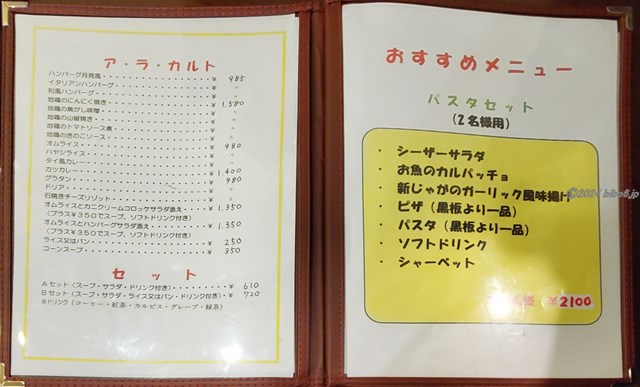 ア・ラ・カルト
ハンバーグ月見風・・・・・・・・・・・・・・・・￥ 985
イタリアンハンバーグ・・・・・・・・・・・・・・￥ 〃
和風ハンバーグ・・・・・・・・・・・・・・・・・￥ 〃
地鶏のにんにく焼き・・・・・・・・・・・・・・・￥ 1,580
地鶏の焦がし味噌・・・・・・・・・・・・・・・・￥ 〃
地鶏の山椒焼き・・・・・・・・・・・・・・・・・￥ 〃
地鶏のトマトソース煮・・・・・・・・・・・・・・￥ 〃
地鶏のきのこソース・・・・・・・・・・・・・・・￥ 〃
オムライス・・・・・・・・・・・・・・・・・・・￥ 980
ハヤシライス・・・・・・・・・・・・・・・・・・￥ 〃
タイ風カレー・・・・・・・・・・・・・・・・・・￥ 〃
カツカレー・・・・・・・・・・・・・・・・・・・￥ 1,400
グラタン・・・・・・・・・・・・・・・・・・・・￥ 980
ドリア・・・・・・・・・・・・・・・・・・・・・￥ 〃
石焼きチーズリゾット・・・・・・・・・・・・・・￥ 〃
オムライスとカニクリームコロッケサラダ添え・・・￥ 1,350
(プラス￥350でスープ、ソフトドリンク付き)
オムライスとハンバーグサラダ添え・・・・・・・・￥ 1,350
(プラス￥350でスープ、ソフトドリンク付き)
ライス又はパン・・・・・・・・・・・・・・・・・￥ 250
コーンスープ・・・・・・・・・・・・・・・・・・￥ 350
セット
Aセット(スープ・サラダ・ドリンク付き)・・・・・・￥ 610
Bセット(スープ・サラダ・ライス又はパン・ドリンク付き)・￥ 720
※ドリンク(コーヒー・紅茶・カルピス・グレープ・緑茶)
おすすめメニュー
パスタセット
(2名様用)
・ シーザーサラダ
・ お魚のカルパッチョ
・ 新じゃがのガーリック風味揚げ
・ ピザ(黒板より一品)
・ パスタ(黒板より一品)
・ ソフトドリンク
・ シャーベット
￥2100
©2024 bibo8.jp